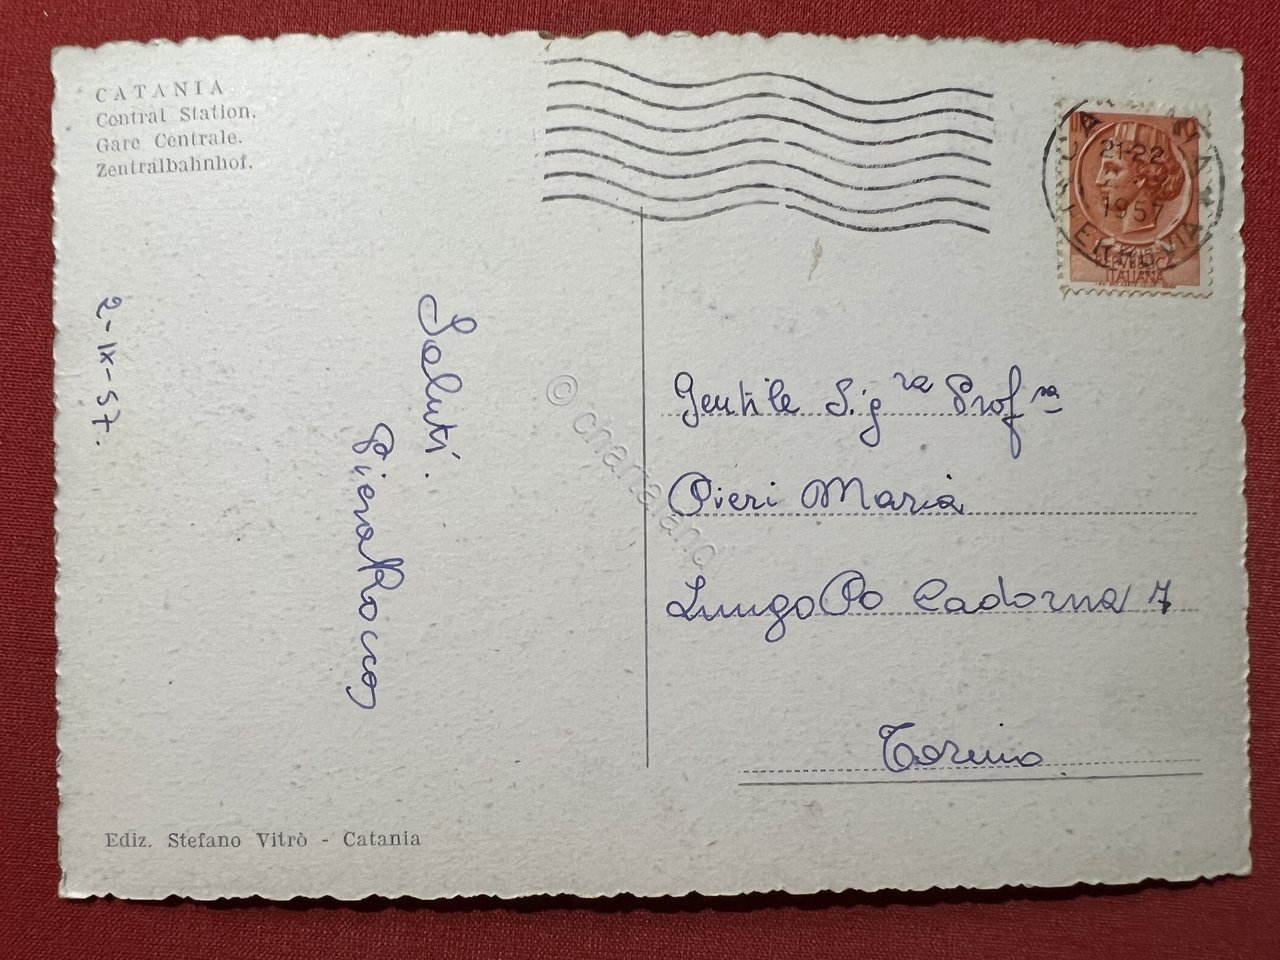 CATANIA
Central Station.
Gare Centrale.
Zentralbahnhof.
2-IX-57.
Saluti.
Piera Rocco
Ediz. Stefano Vitrò - Catania
21-22
1957
FERROVIA
ITALIANA
Gentile Sig ra Prof ssa
Pieri Maria
Lungo Po Cadorna 7
Torino
© chartaland